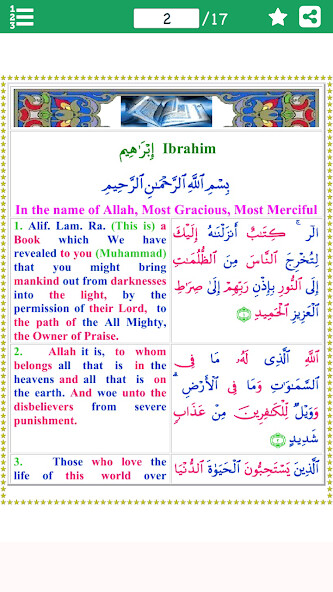 1
2
3
2 /17
إِبْرَاهِيم Ibrahim
بِسْمِ اللَّهِ الرَّحْمَٰنِ الرَّحِيمِ
In the name of Allah, Most Gracious, Most Merciful
1. Alif. Lam. Ra. (This is) a
Book which We have
revealed to you (Muhammad)
that you might bring
mankind out from darknesses
into the light, by the
permission of their Lord, to
the path of the All Mighty,
the Owner of Praise.
الٓر ۚ كِتَٰبٌ أَنزَلْنَٰهُ إِلَيْكَ
لِتُخْرِجَ النَّاسَ مِنَ الظُّلُمَٰتِ
إِلَى النُّورِ بِإِذْنِ رَبِّهِمْ إِلَىٰ صِرَٰطِ
الْعَزِيزِ الْحَمِيدِ ﴿١﴾
2. Allah it is, to whom
belongs all that is in the
heavens and all that is on
the earth. And woe unto the
disbelievers from severe
punishment.
اللَّهِ الَّذِي لَهُۥ مَا فِي
السَّمَٰوَٰتِ وَمَا فِي الْأَرْضِ ۗ
وَوَيْلٌ لِّلْكَٰفِرِينَ مِنْ عَذَابٍ
شَدِيدٍ ﴿٢﴾
3. Those who love the
life of this world over
الَّذِينَ يَسْتَحِبُّونَ الْحَيَوٰةَ الدُّنْيَا